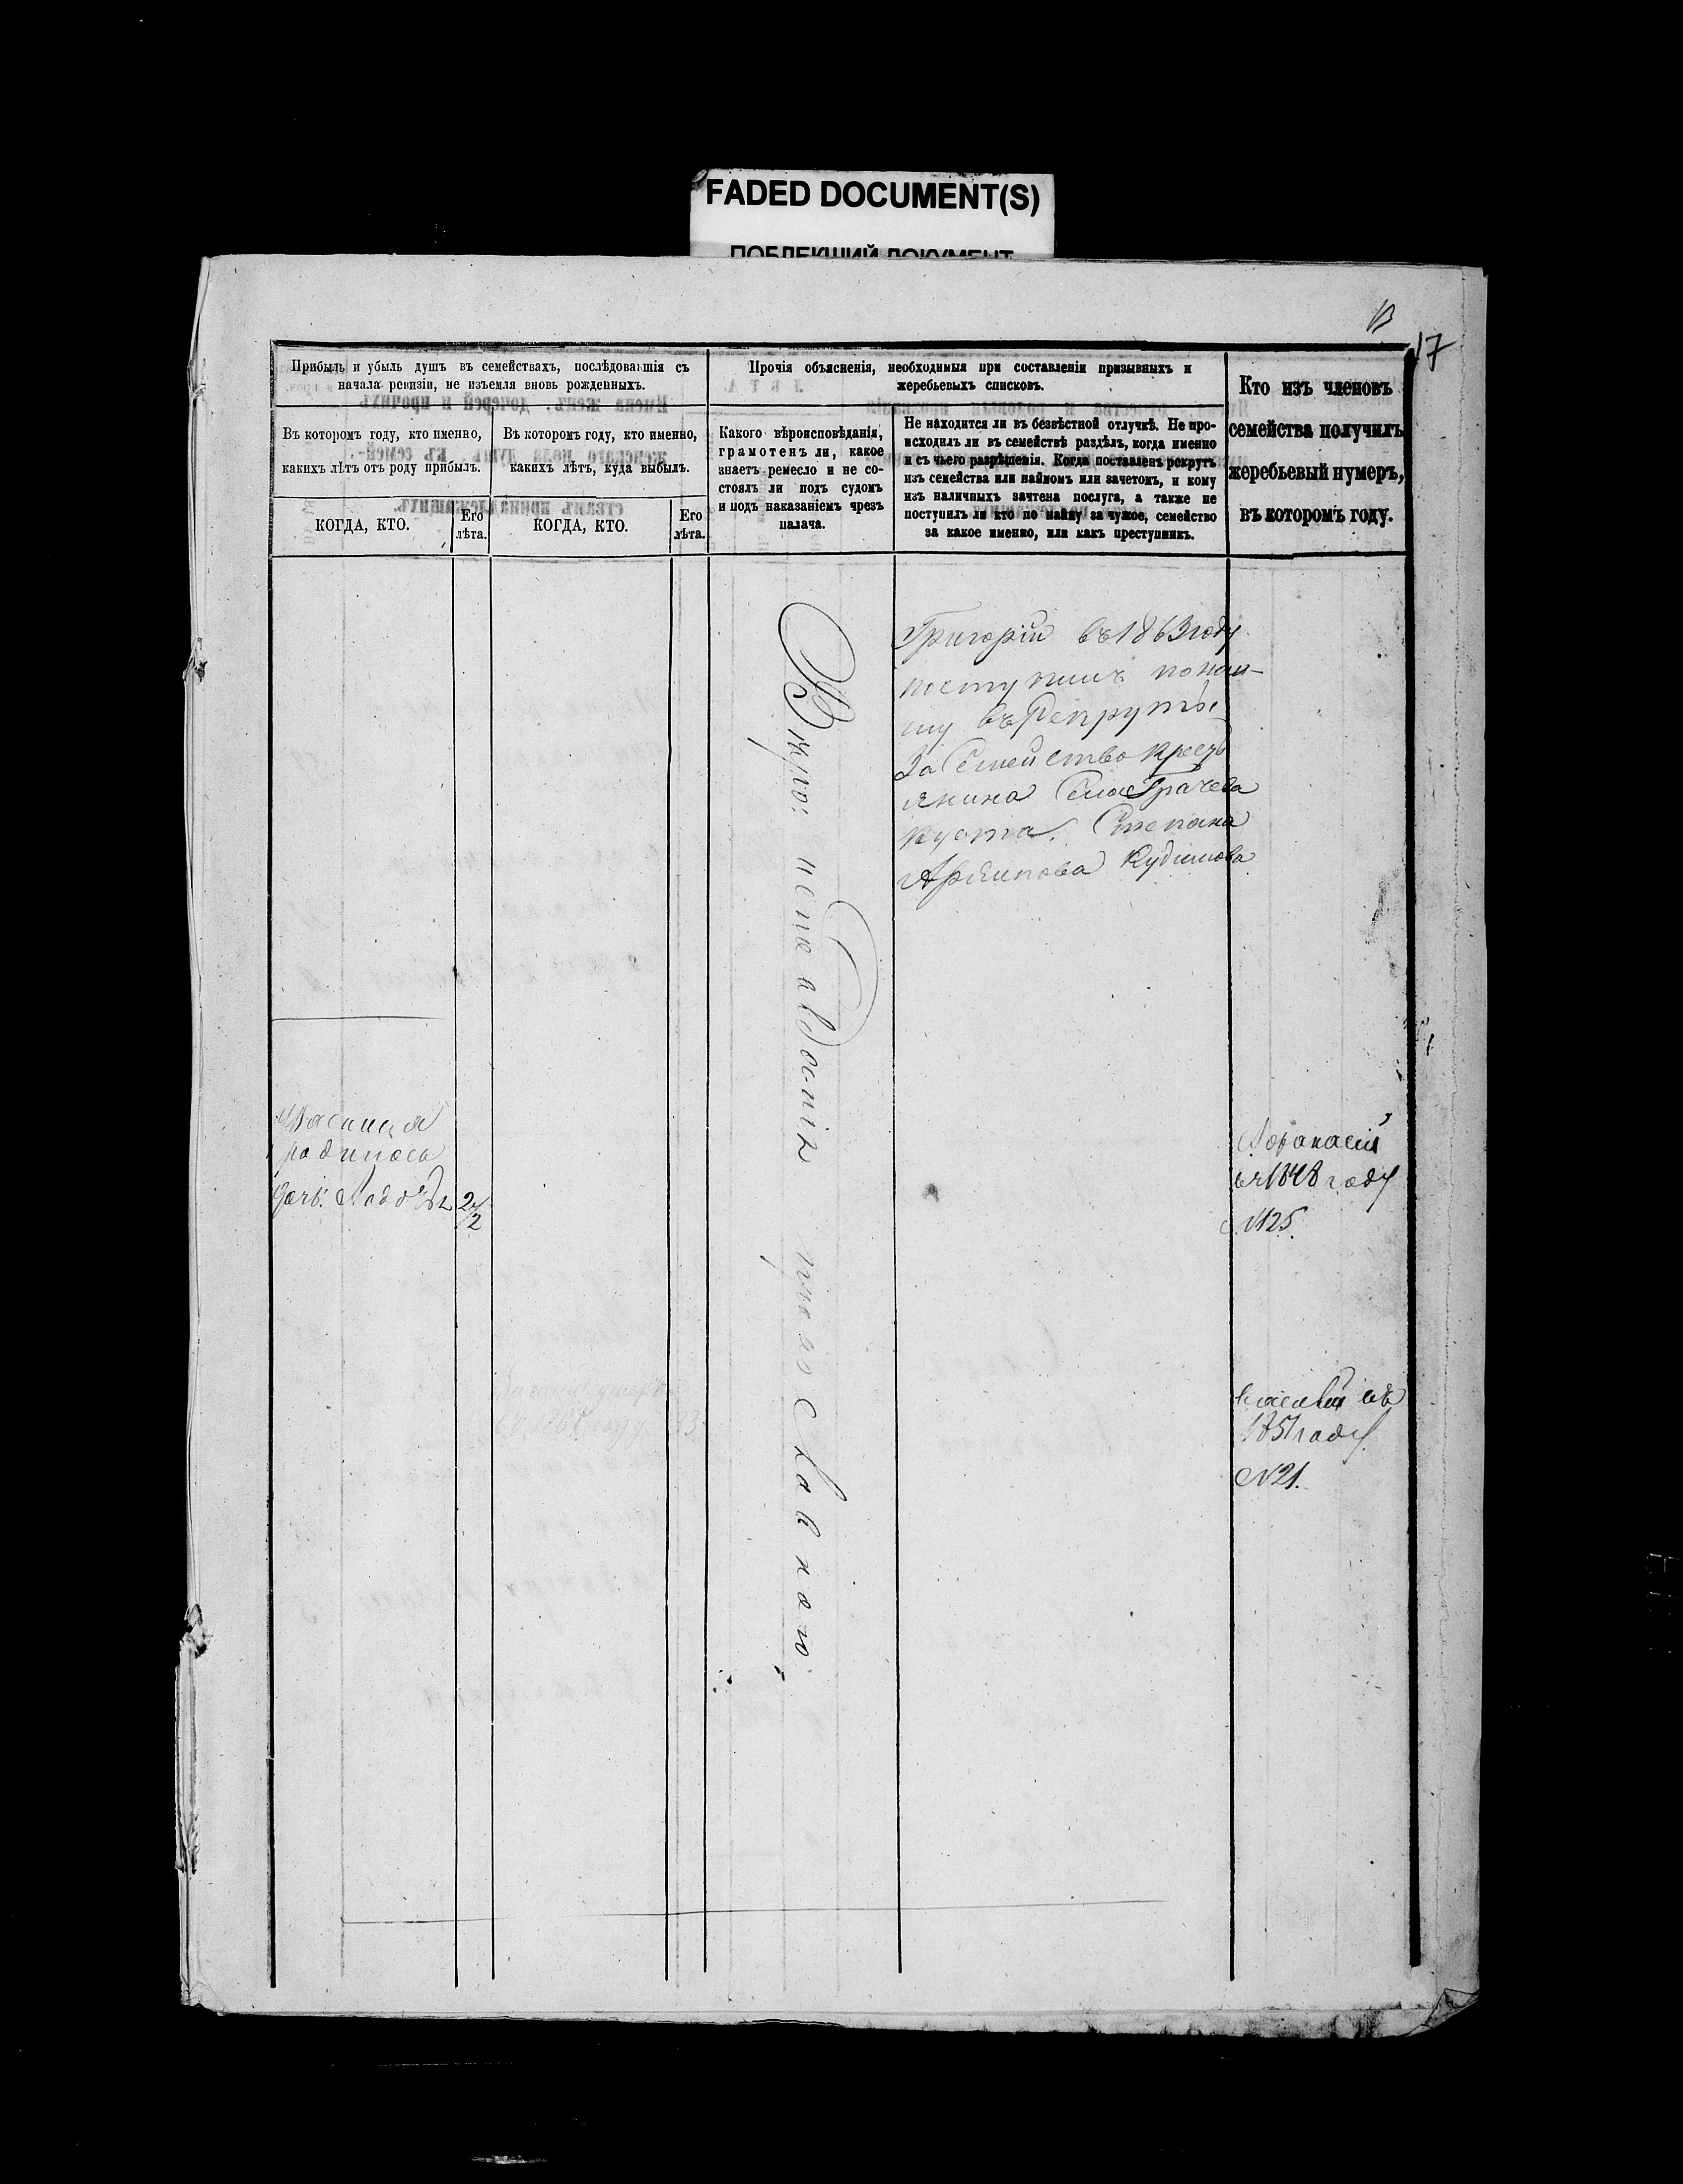 FADED DOCUMENT(S)
ПОБЛЕКШИЙ ДОКУМЕНТ
17
Прибыль и убыль душъ въ семействахъ, послѣдовавшія съ
начала ревизіи, не изъемля вновь рожденныхъ.
Въ которомъ году, кто именно,
какихъ лѣтъ отъ роду прибылъ.
КОГДА, КТО.
Его
лѣта.
Въ которомъ году, кто именно,
какихъ лѣтъ, куда выбылъ.
КОГДА, КТО.
Его
лѣта.
Прочія объясненія, необходимыя при составленіи призывныхъ и
жеребьевыхъ списковъ.
Какого вѣроисповѣданія,
грамотенъ ли, какое
знаетъ ремесло и не со-
стоялъ ли подъ судомъ
и подъ наказаніемъ чрезъ
палача.
Не находится ли въ безвѣстной отлучкѣ. Не про-
исходилъ ли въ семействѣ раздѣлъ, когда именно
и съ чьего разрѣшенія. Когда поставленъ рекрутъ
изъ семейства или наймомъ или зачетомъ, и кому
изъ наличныхъ зачтена послуга, а также не
поступилъ ли кто по найму за чужое, семейство
за какое именно, или какъ преступникъ.
Кто изъ членовъ
семейства получилъ
жеребьевый нумеръ,
въ которомъ году.
Григорій въ 1863 году
поступилъ по най-
му въ Рекруты
За Семейство Кресть
янина Села Грачева
Куста. Степана
Архипова Кудимова
родилась
дочь
2/2
православнаго
Афанасій
1848 году
№25.
въ
1851 году
№21.